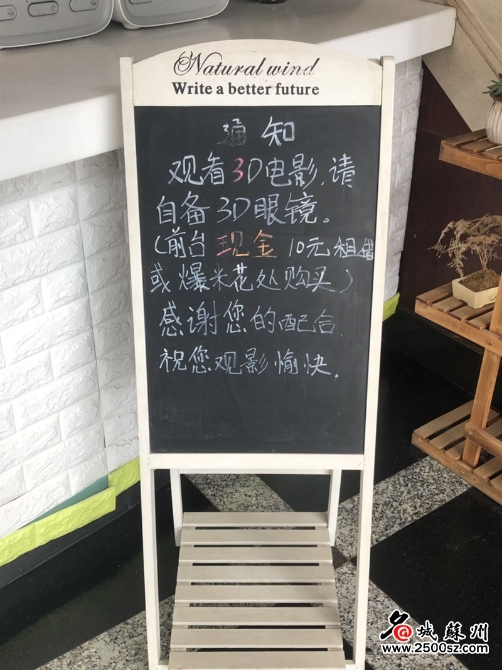 Natural wind
Write a better future
通知
观看3D电影,请
自备3D眼镜。
(前台现金10元租借
或爆米花处购买)
感谢您的配合.
祝您观影愉快.
名@城蘇州
www.2500sz.com